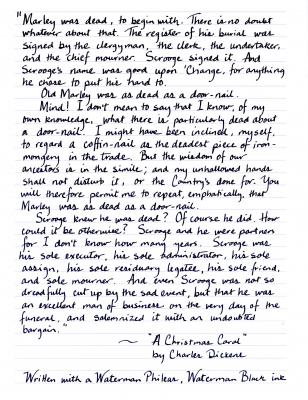 "Marley was dead, to begin with. There is no doubt
whatever about that. The register of his burial was
signed by the clergyman, the clerk, the undertaker,
and the chief mourner. Scrooge signed it. And
Scrooge's name was good upon 'Change, for anything
he chose to put his hand to.
Old Marley was as dead as a door-nail.
Mind! I don't mean to say that I know, of my
own knowledge, what there is particularly dead about
a door-nail. I might have been inclined, myself,
to regard a coffin-nail as the deadest piece of iron-
mongery in the trade. But the wisdom of our
ancestors is in the simile; and my unhallowed hands
shall not disturb it, or the Country's done for. You
will therefore permit me to repeat, emphatically, that
Marley was as dead as a door-nail.
Scrooge knew he was dead? Of course he did. How
could it be otherwise? Scrooge and he were partners
for I don't know how many years. Scrooge was
his sole executor, his sole administrator, his sole
assign, his sole residuary legatee, his sole friend,
and sole mourner. And even Scrooge was not so
dreadfully cut up by the sad event, but that he was
an excellent man of business on the very day of the
funeral, and solemnized it with an undoubted
bargain."
~ "A Christmas Carol"
by Charles Dickens
Written with a Waterman Phileas, Waterman Black ink